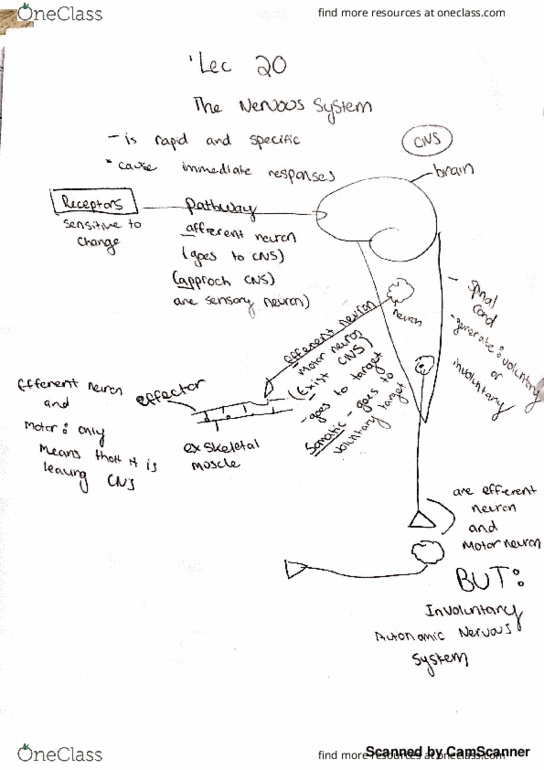 OneClass
find more resources at oneclass.com
'Lec 20
The Nervous System
- is rapid and specific
* cause immediate responses
CNS
brain
Receptors
sensitive to
change
Pathway
affrerent neuron
(goes to CNS)
(approch CNS)
are sensory neuron)
Efferent neuron
Motor neuron
(Exist CNS)
- goes to target
Somatic - goes to
voluntary target
neuron
- Spinal
Cord
- generate: voluntary
or
involuntary
Efferent neuron
and
Motor: only
Means that it is
leaving CNS
effector
ex skeletal
muscle
are efferent
neuron
and
Motor neuron
BUT:
Involuntary
Autonomic Nervous
System
OneClass
find more resources at oneclass.com
Scanned by CamScanner